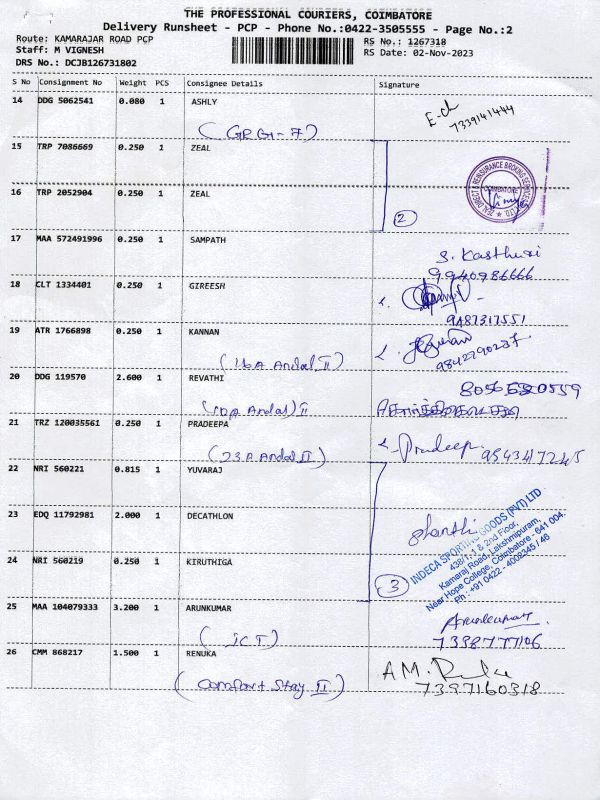 THE PROFESSIONAL COURIERS, COIMBATORE
Delivery Runsheet - PCP - Phone No.:0422-3505555 - Page No.:2
Route: KAMARAJAR ROAD PCP
RS No.: 1267318
Staff: M VIGNESH
RS Date: 02-Nov-2023
DRS No.: DCJB126731802
S No Consignment No Weight PCS Consignee Details Signature
14 DDG 5062541 0.080 1 ASHLY
7339141444
15 TRP 7086669 0.250 1 ZEAL
16 TRP 2052904 0.250 1 ZEAL
ZEAL DIRECT & REINSURANCE BROKING SERVICES LTD
COIMBATORE
2
17 MAA 572491996 0.250 1 SAMPATH
S. Kasthuri
9940986666
18 CLT 1334401 0.250 1 GIREESH
9487317551
19 ATR 1766898 0.250 1 KANNAN
(16A Andal II)
9842790237
20 DDG 119570 2.600 1 REVATHI
21 TRZ 120035561 0.250 1 PRADEEPA
(23A Andal II)
Pradeep
22 NRI 560221 0.815 1 YUVARAJ
23 EDQ 11792981 2.000 1 DECATHLON
24 NRI 560219 0.250 1 KIRUTHIGA
3
INDECA SPORTING GOODS (PVT) LTD
438/1, 1 & 2nd Floor,
Kamaraj Road, Lakshmipuram,
Near Hope College, Coimbatore - 641 004.
Ph : +91 0422 - 4002345 / 46
25 MAA 104079333 3.200 1 ARUNKUMAR
(ICT)
Arunkumar
26 CMM 868217 1.500 1 RENUKA
(Comfort Stay II)
7397160318